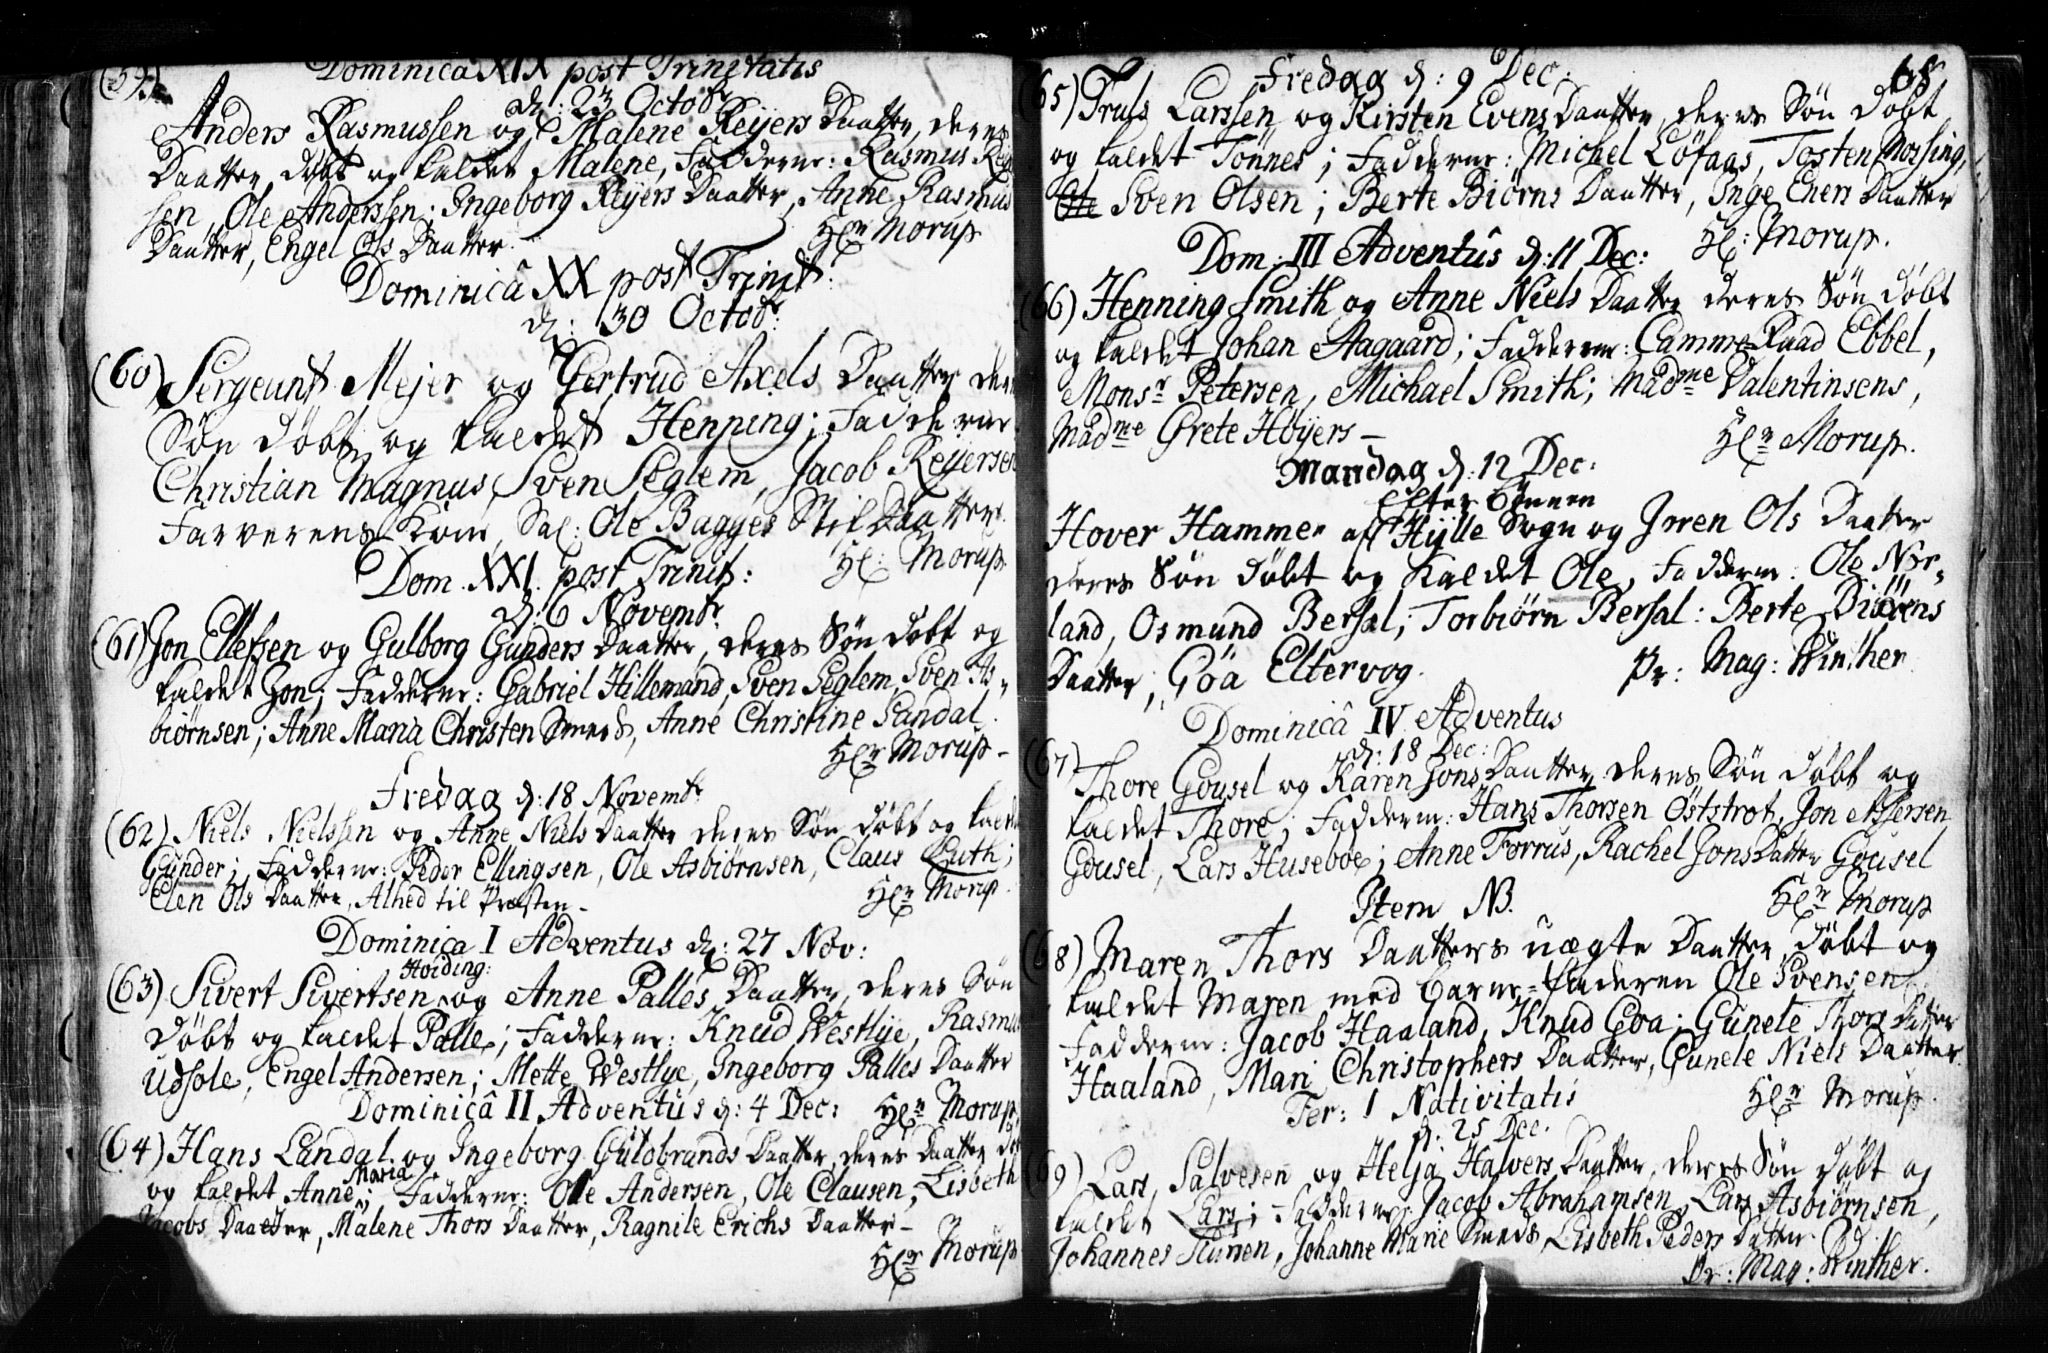 (59)
Dominica XIX post Trinitatis
d: 23 Octobr
Anders Rasmussen og Malene Reijers Daatter, deres
Daatter døbt og kaldet Malene, Fadderne: Rasmus Reij
sen, Ole Anderssen; Ingeborg Reijers Daatter, Anne Rasmus
Daatter, Engel Ols Daatter.
Hr Morup
Dominicâ XX post Trinit:
d: 30 Octobr:
(60) Sergeant Mejer og Gertrud Axels Daatter der
Søn døbt og kaldet Henning; Fadderne
Christian Magnus, Sven Seglem, Jacob Reijersen
Farverens Kone, Sal: Ole Bagges Stif Daatter.
Hr: Morup
Dom. XXI. post Trinit:
d: 6 Novembr.
(61) Jon Ellefsen og Gulborg Gunders Daatter, deres Søn døbt og
kaldet Jon; Fadderne: Gabriel Hillemand, Sven Seglem, Sven As-
biørnsen; Anne Maria Christen Smeds, Anne Christine Sandal.
Hr Morup-
Fredag d: 18 Novembr
(62) Niels Nielssen og Anne Niels Daatter deres Søn døbt og kalde
Gunder; Fadderne: Peder Ellingsen, Ole Asbiørnsen, Claus Luth;
Elen Ols Daatter, Alhed til Præsten-
Hr Morup
Dominica I Adventus d: 27 Nov:
Hoiding:
(63) Sivert Sivertsen og Anne Palles Daatter, deres Søn
døbt og kaldet Palle; Fadderne: Knud Westlye, Rasmus
Udsole, Engel Andersen; Mette Westlye, Ingeborg Palles Daatter
Dominicâ II Adventus d: 4 Dec: Hr Morup
(64) Hans Landal og Ingeborg Guldbrands Daatter, deres Daatter døb
Maria
og kaldet Anne; Fadderne: Ole Andersen, Ole Clausen, Lisbeth
Jacobs Daatter, Malene Thors Daatter, Ragnile Erichs Daatter-
Hr Morup
68
Fredag d: 9 Dec:
65) Truls Larssen og Kirsten Evens Daatter, deres Søn døbt
og kaldet Tønnes; Fadderne: Michel Løfaas, Tosten Mossing,
Ole Sven Olsen; Berte Biørns Daatter, Inge Eners Daatter
Hr: Morup.
Dom: III Adventûs d: 11 Dec:
66) Henning Smith og Anne Niels Daatter deres Søn døbt
og kaldet Johan Aagaard; Fadderne: CammerRaad Ebbel,
Monsr Petersen, Michael Smith; Madme Valentinsens,
Madme Grete Høyers-
Hr Morup.
Mandag d: 12 Dec:
Efter Bønnen
Hover Hammer af Hylle Sogn og Jren Ols Daatter
deres Søn døbt og kaldet Ole, Fadderne: Ole Nor-
land, Osmund Bersal; Torbiørn Bersal: Berte Biørens
Daatter, Goa Eltervog.
Pr: Mag: Winther.
Dominicâ IV Adventus
d: 18 Dec:
67) Thore Gousel og Karen Jons Daatter, deres Søn døbt og
kaldet Thore; Fadderne: Hans Thorsen Øststrøt, Jon Assersen
Gousel, Lars Huseboe; Anne Forrus, Rachel Jons Datter Gousel
Item NB.
Hr Morup
68) Maren Thors Daatters uægte Daatter, døbt og
kaldet Maren med barne-faderen Ole Svensen
Fadderne: Jacob Haaland, Knud Goa; Gunele Thors Datter
Haaland, Mari Christophers Daatter, Gunele Niels Daatter.
Fer: 1 Nativitatis
Hr Morup.
d: 25 Dec.
69) Lars Salvesen og Helja Halvers Daatter, deres Søn døbt og
kaldet Lars; Fadderne: Jacob Abrahamsen, Lars Asbiørnsen,
Johannes Stunen, Johanne Marie Smeds, Lisbeth Peders Datter.
Pr: Mag: Winther.